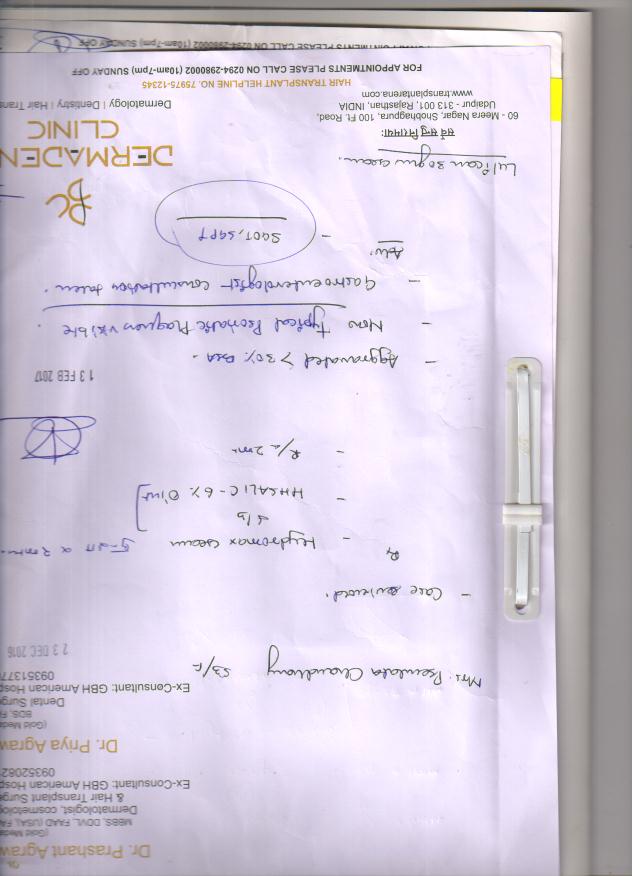 Dr. Prashant Agraw
(Gold Meda
MBBS, DDVL, FAAD (USA), FA
Dermatologist, cosmetolo
& Hair Transplant Surge
Ex-Consultant: GBH American Hosp
09352082
Dr. Priya Agraw
(Gold Meda
BDS, F
Dental Surge
Ex-Consultant: GBH American Hosp
0935137
23 DEC 2016
Mrs. Chaudhary 53/F
- Case reviewed.
Rx
- Hydromax cream
L/A
- HHSALIC - 6% Oint
- R/A 2m
13 FEB 2017
- Aggravated > 30% BSA.
- Now Typical Psoriatic Plaques visible.
- Gastroenterologist consultation taken.
Adv.
- SGOT, SGPT
30 gm cream.
DC
DERMADEN
CLINIC
Dermatology | Dentistry | Hair Trans
सर्वे सन्तु निरामया:
60 - Meera Nagar, Shobhagpura, 100 Ft. Road,
Udaipur - 313 001, Rajasthan, INDIA
www.transplantarena.com
HAIR TRANSPLANT HELPLINE NO. 75975-12345
FOR APPOINTMENT PLEASE CALL ON 0294-2980002 (10am-7pm) SUNDAY OFF
PLEASE CALL ON 0294-2980002 (10am-7pm) SUNDAY OFF